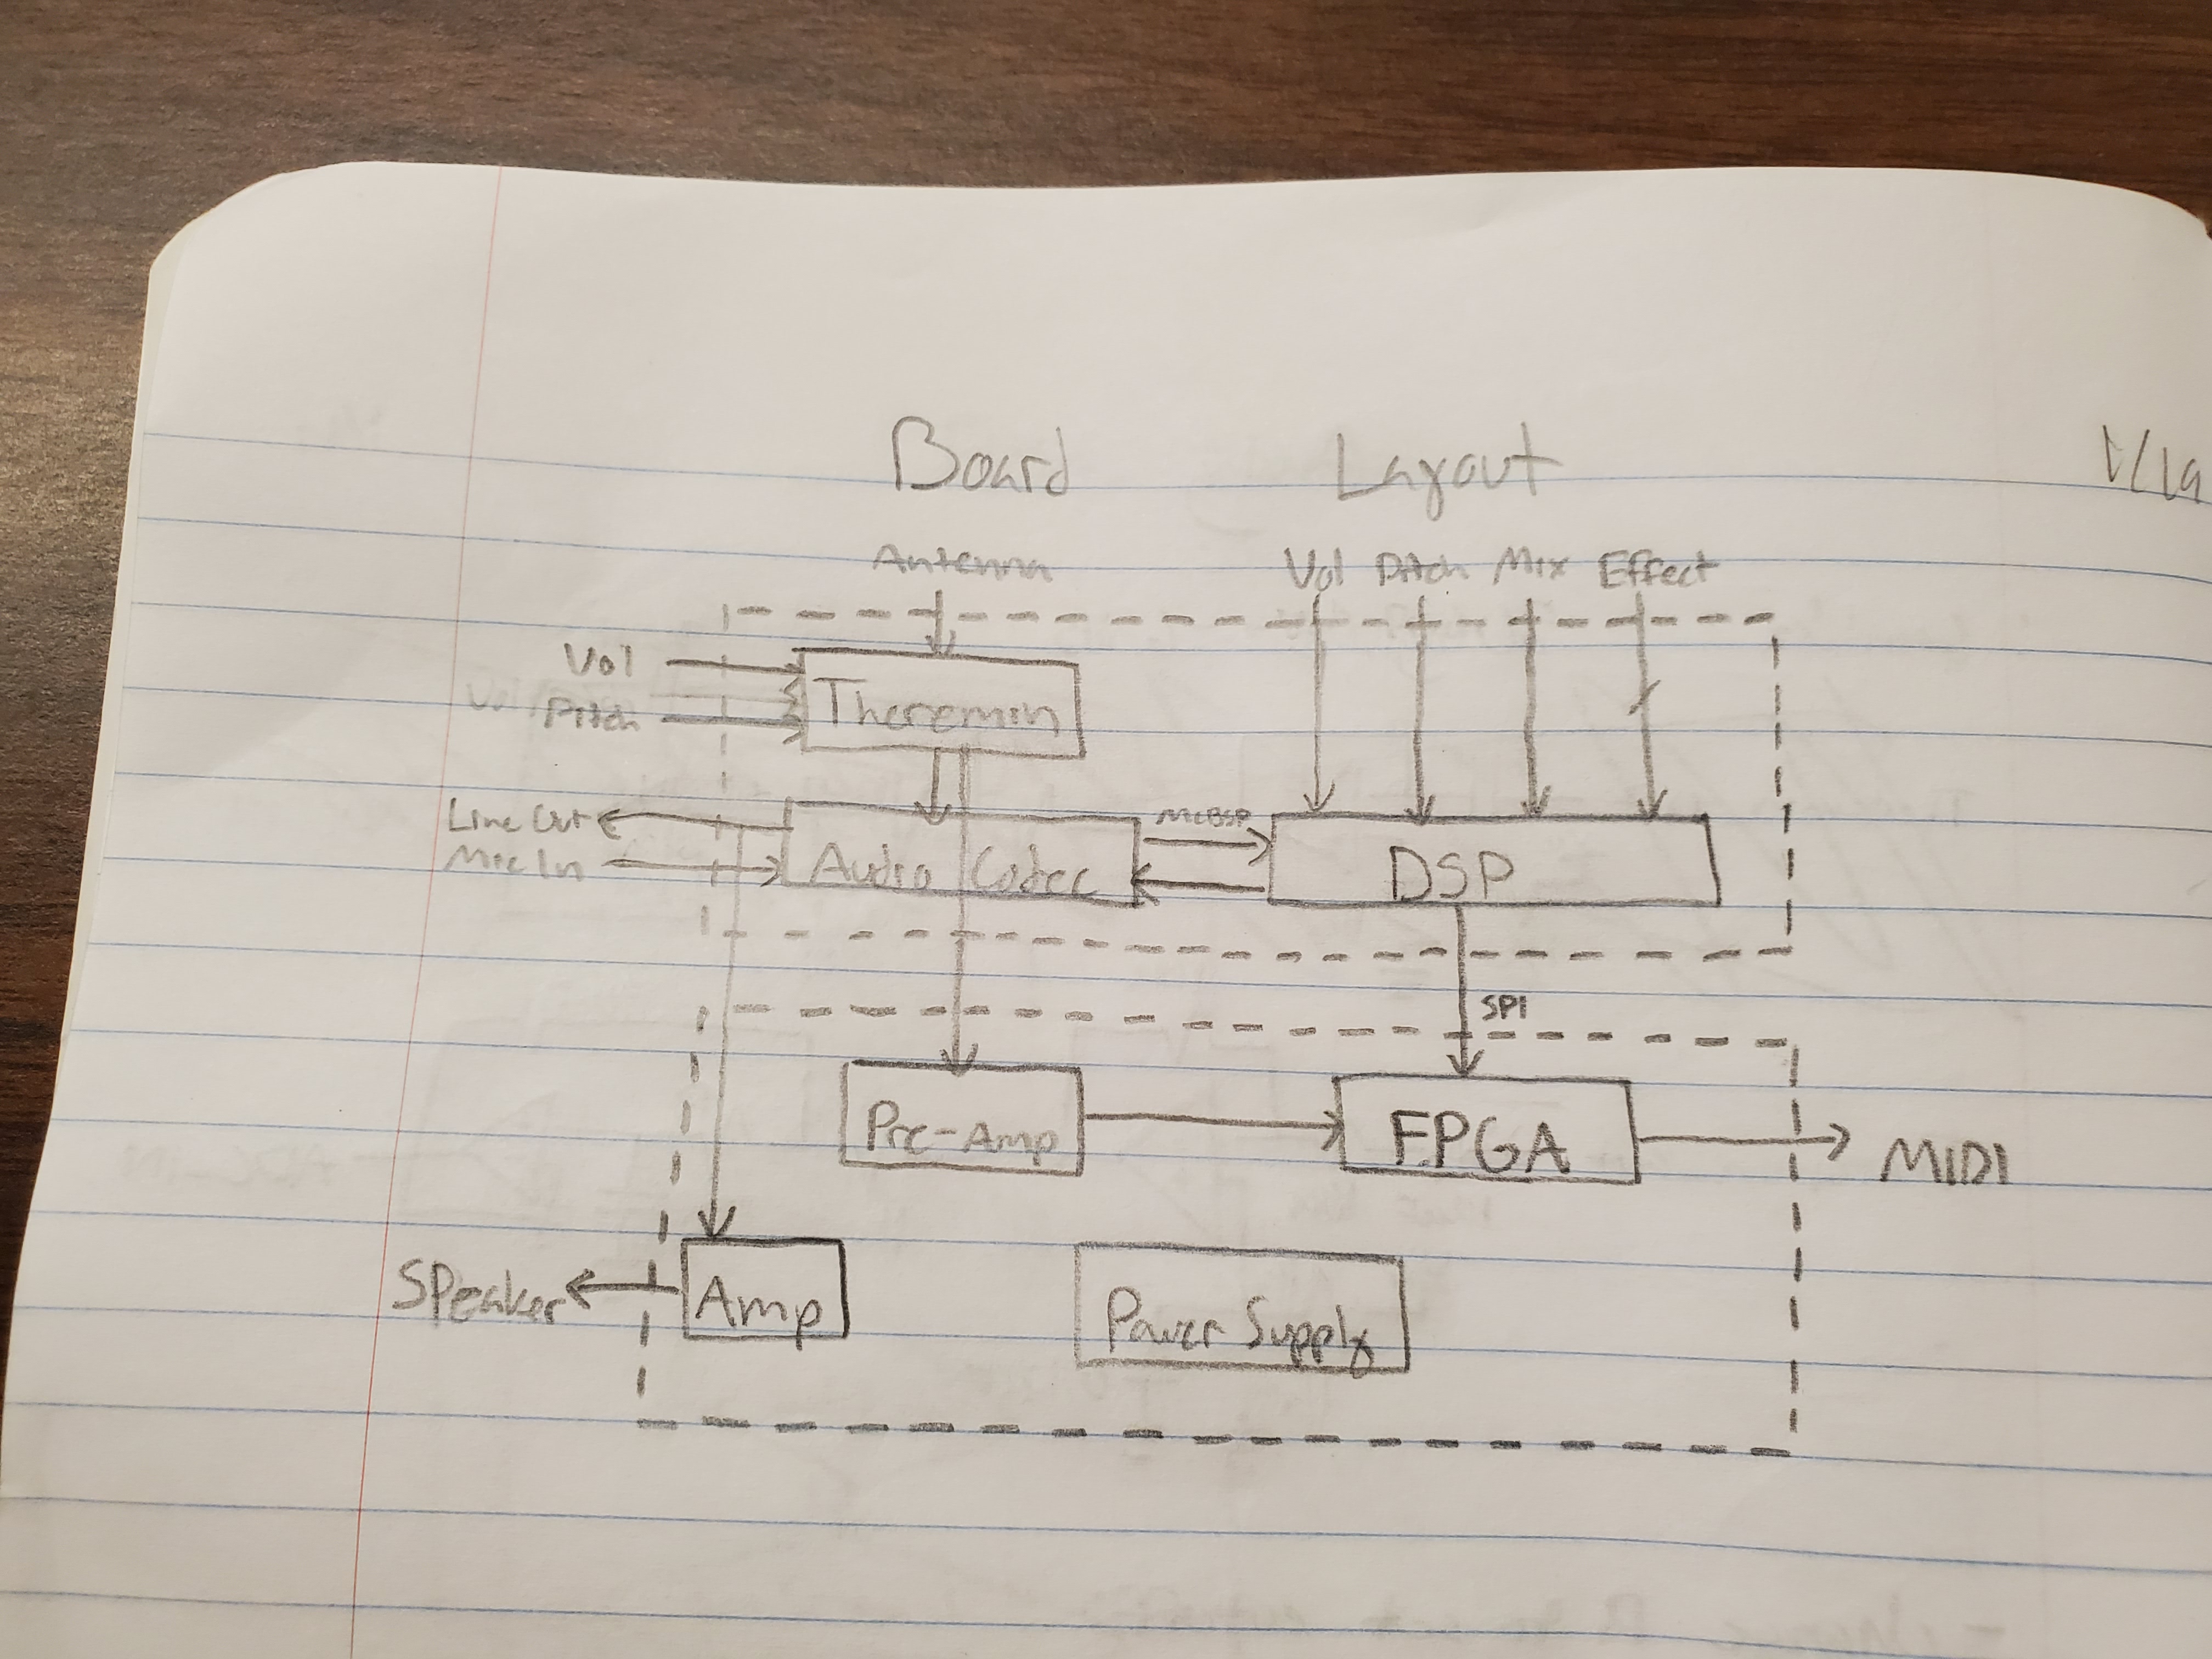 Board Layout
1/19
Antenna
Vol Pitch Mix Effect
Vol
Pitch
Theremin
Line Out
Mic In
Audio Codec
McBSP
DSP
SPI
Pre-Amp
FPGA
MIDI
Speaker
Amp
Power Supply